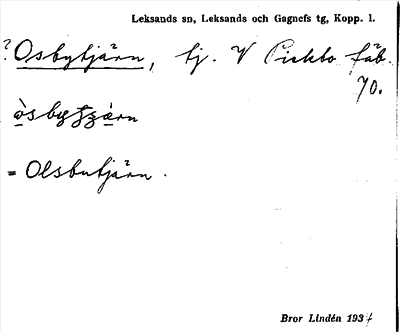 Leksands sn, Leksands och Gagnefs tg, Kopp. l.
? Osbytjärn, tj. V Pickbo fäb.
70.
= Olsbutjärn.
Bror Lindén 1934